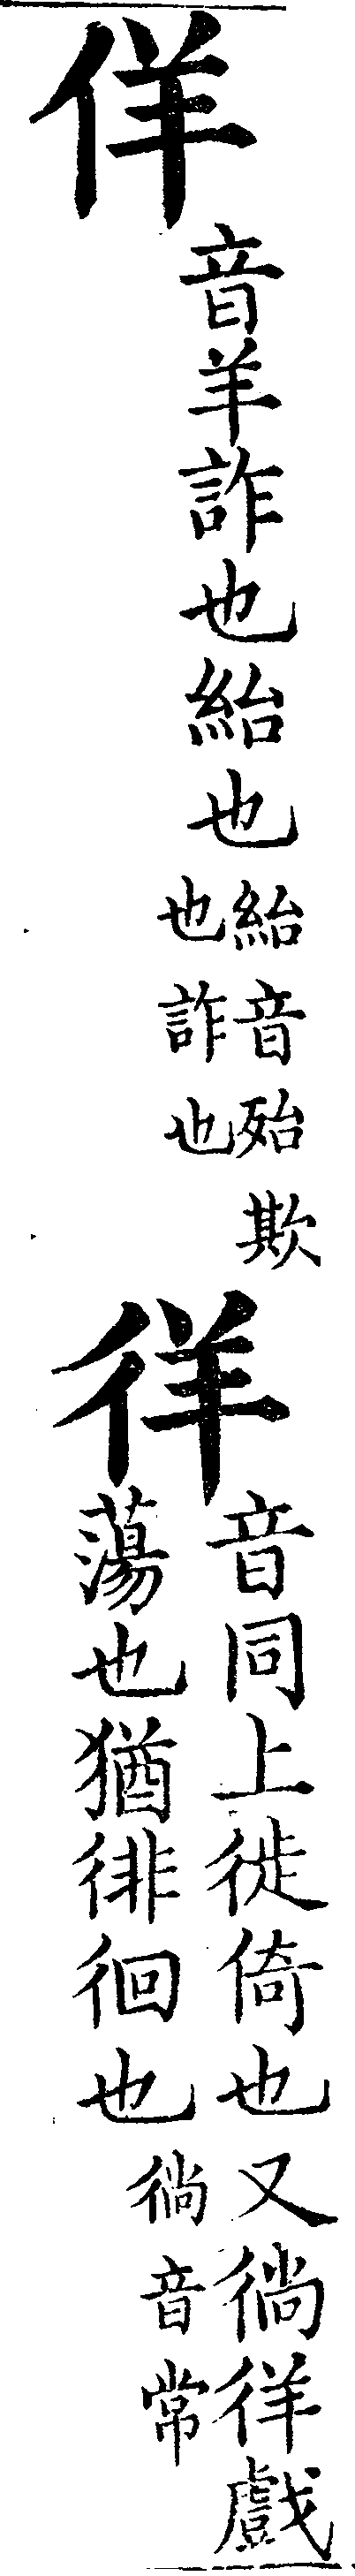 佯
音羊詐也紿也
紿音殆欺
也詐也
徉
音同上徙倚也又徜徉戲
蕩也猶徘徊也
徜音常